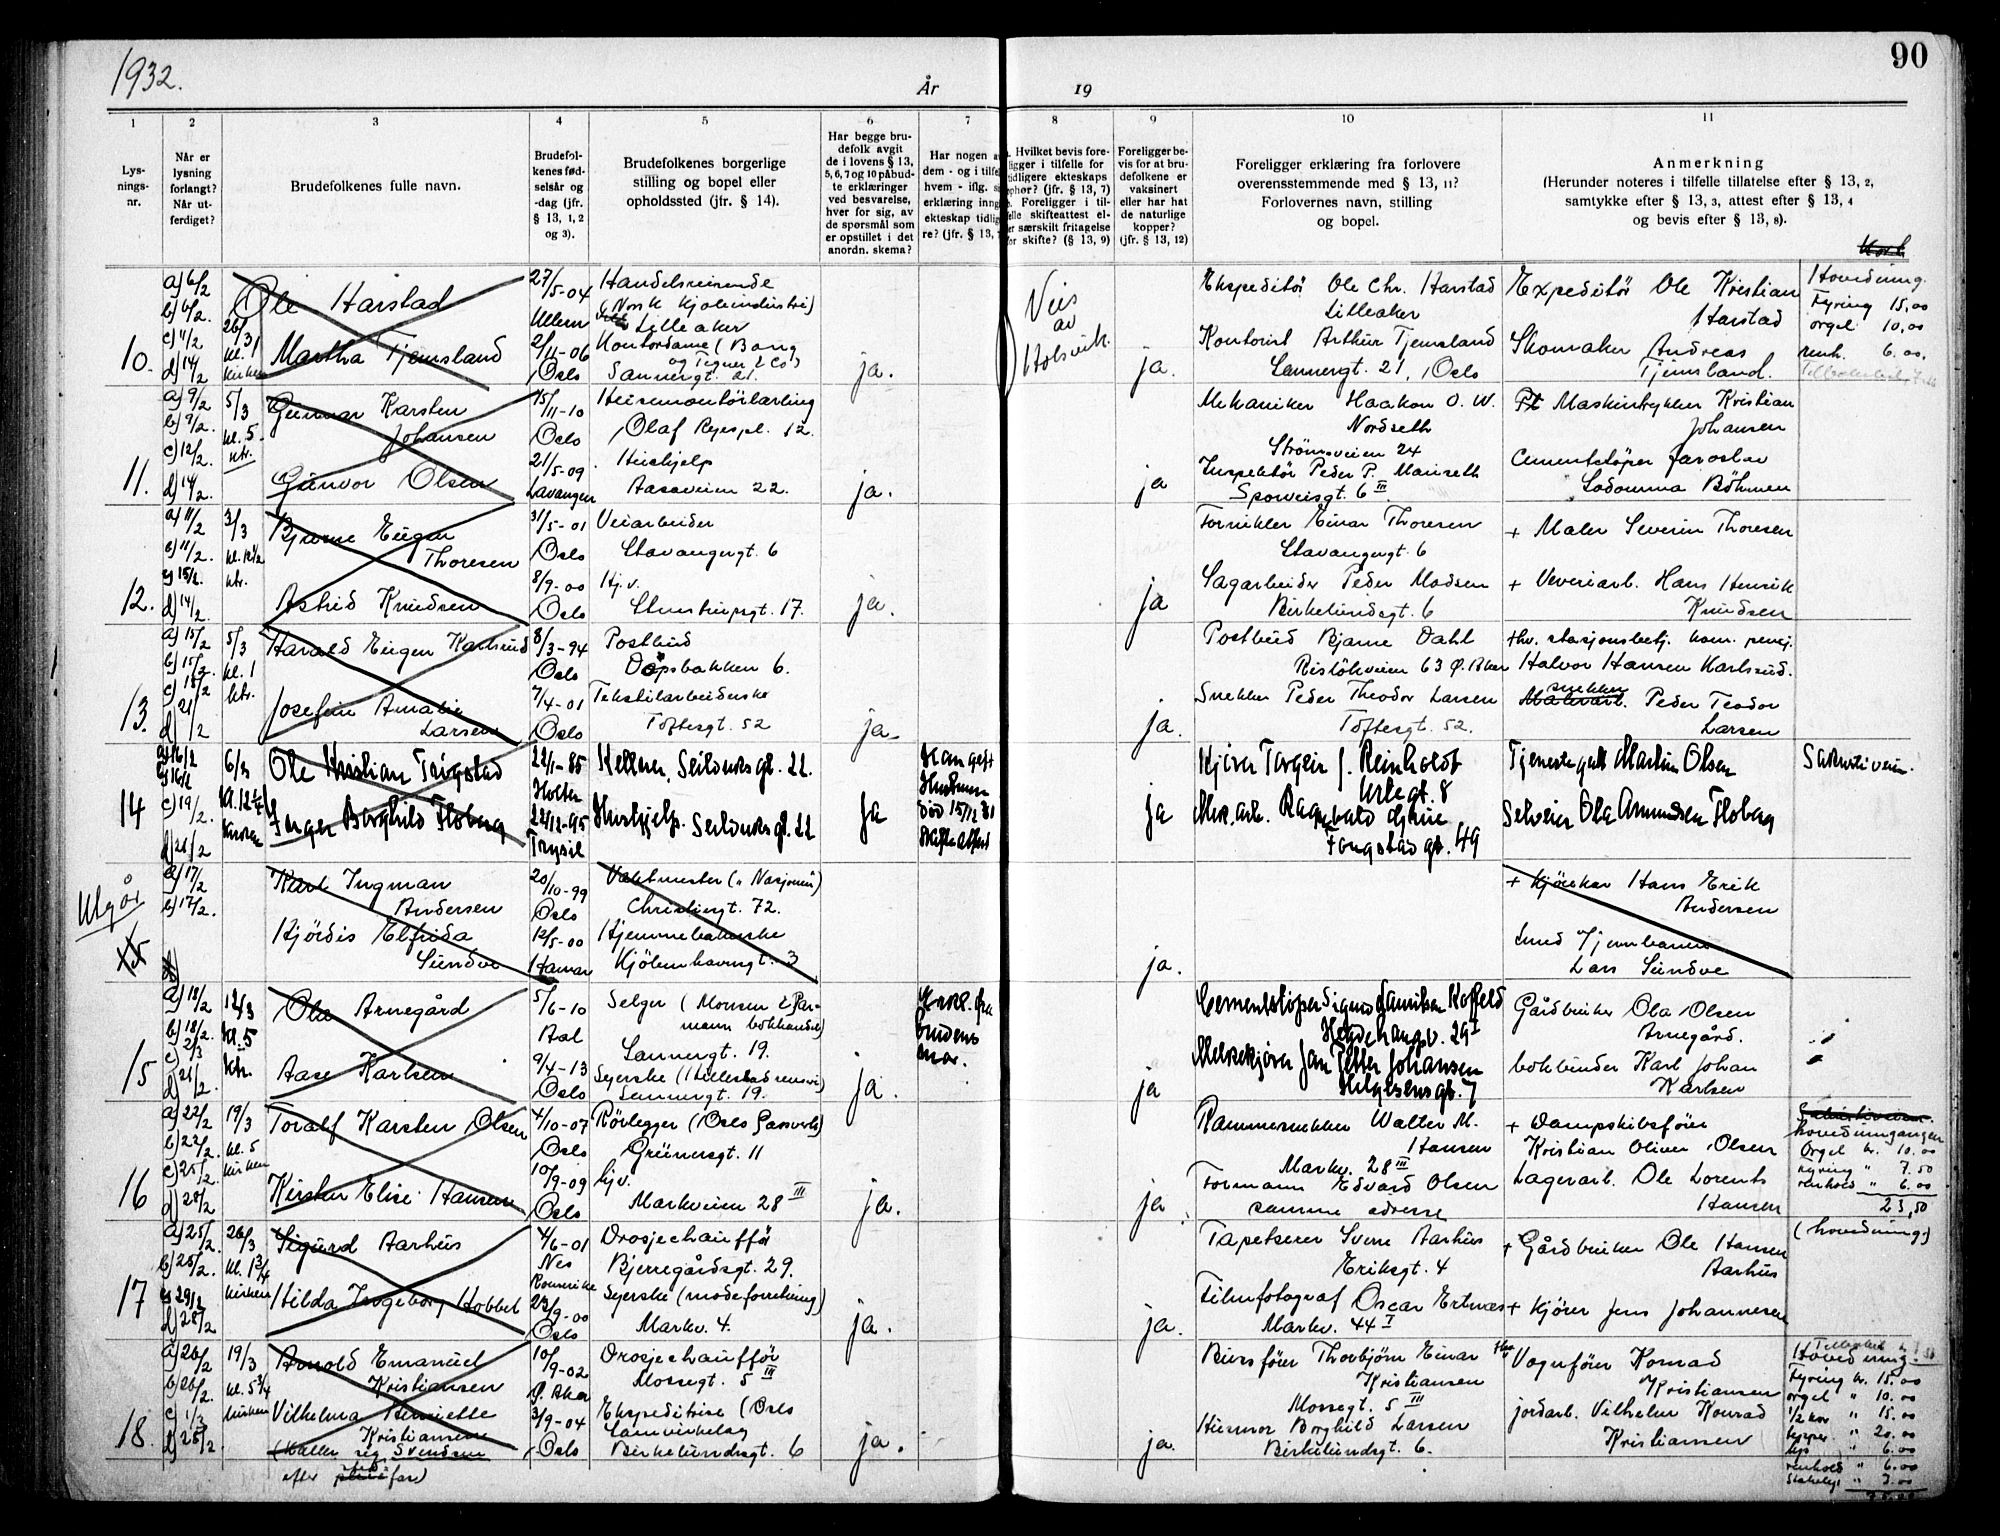 1932.
År
19
90
1
2
3
4
5
6
7
8
9
10
11
Lys-
nings-
nr.
Når er
lysning
forlangt?
Når ut-
ferdiget?
Brudefolkenes fulle navn.
Brudefol-
kenes fød-
selsår og
-dag (jfr.
§ 13, 1, 2
og 3).
Brudefolkenes borgerlige
stilling og bopel eller
opholdssted (jfr. § 14).
Har begge bru-
defolk avgit
de i lovens § 13,
5, 6, 7 og 10 påbud-
te erklæringer
ved besvarelse,
hver for sig, av
de spørsmål som
er opstillet i det
anordn. skema?
Har nogen a
dem - og i tilfe
hvem - iflg. s
erklæring inng
ekteskap tidlig
re? (jfr. § 13,
Hvilket bevis fore-
ligger i tilfelle for
tidligere ekteskaps
ophør? (jfr. § 13, 7)
Foreligger i til-
felle skifteattest el-
er særskilt fritagelse
for skifte? (§ 13, 9)
Foreligger be-
vis for at bru-
defolkene er
vaksinert
eller har hat
de naturlige
kopper?
(jfr. § 13, 12)
Foreligger erklæring fra forlovere
overensstemmende med § 13, 11?
Forlovernes navn, stilling
og bopel.
Anmerkning
(Herunder noteres i tilfelle tillatelse efter § 13, 2,
samtykke efter § 13, 3, attest efter § 13, 4
og bevis efter § 13, 8).
10.
a) 6/2
b) 6/2.
c) 11/2
d) 14/2
26/3
kl. 1
kirken
Ole Harstad
Martha Tjemsland
27/5-04
Ullern
2/11-06
Oslo
Handelsreisende
(Norsk Kjoleindustri)
Lilleaker
Kontordame (Bang
og Tegner & Co)
Sannergt. 21.
ja.
Vies
av
Holsvik.
ja.
Ekspeditør Ole Chr. Harstad
Lilleaker
Kontorist Arthur Tjemsland
Sannergt. 21, Oslo
Expeditør Ole Kristian
Harstad
Skomaker Andreas
Tjemsland.
Hovedinng.
Fyring 15,00
orgel 10,00
renh. 6.00.
11.
a) 9/2
b) 9/2.
c) 12/2.
d) 14/2
5/3
kl. 5
ktr.
Gunnar Karsten
Johansen
Gunvor Olsen
15/11-10
Oslo
21/5-09
Lavangen
Heismontørlærling
Olaf Ryespl. 12.
Hushjelp
Aasaveien 22.
ja.
ja
Mekaniker Haakon O. W.
Nordseth
Strømsveien 24
Inspektør Peder P. Manseth
Sporveisgt. 6 III
Maskintrykker Kristian
Johansen
Cementstøper Jaroslav
Sodomma Böhmen
12.
a) 11/2
b) 11/2.
c) 15/2.
d) 14/2.
3/3
kl. 12 1/2
ktr.
Bjarne Eugen
Thoresen
Astrid Knudsen
31/5-01
Oslo
8/9-00
Oslo
Veiarbeider
Stavangergt. 6
Hj.v.
Steenstrupsgt. 17.
ja.
ja
Fornikler Einar Thoresen
Stavangergt. 6
Sagarbeider Peder Madsen
Birkelundsgt. 6
+ Maler Severin Thoresen
+ Veveriarb. Hans Henrik
Knudsen
13.
a) 15/2
b) 15/2.
c) 18/2
d) 21/2
5/3
kl. 1
ktr.
Harald Eugen Karlsrud
Josefine Amalie
Larsen
8/3-94
Oslo
7/4-01
Oslo
Postbud
Dopsbakken 6.
Tekstilarbeiderske
Toftesgt. 52
ja.
ja.
Postbud Bjarne Dahl
Risløkveien 63 Ø. Aker
Snekker Peder Theodor Larsen
Toftesgt. 52.
fhv. stasjonsbetj. kom. pensj.
Halvor Hansen Karlsrud.
snekker
Peder Teodor
Larsen
14
a) 16/2
b) 16/2
c) 19/2.
d) 21/2
6/3
kl. 12 1/4
kirken
Ole Kristian Trøgstad
Inger Borghild Floberg
22/1-85
Holter
22/12-95
Trysil
Kellner, Seilduksgt. 22.
Hushjelp. Seilduksgt. 22
ja
Han gift
Hustruen
død 15/12 31
Skifteattest
ja
Kjører Torgeir J. Reinholdt
Urtegt. 8
Mek. arb. Ragnvald Gjeue
Tongstadgt. 49
Tjenestegutt Martin Olsen
Selveier Ole Amundsen Floberg
Sakristiveien.
Utgår
15
a) 17/2
b) 17/2.
Karl Ingman
Andersen
Hjördis Elfrida
Sundve
20/10-99
Oslo
12/5-00
Hamar
Vaktmester ("Nasjonen")
Christiesgt. 72.
Hjemmebakerske
Kjöbenhavngt. 3
ja.
+ Kjöreker Hans Erik
Andersen
Smed Jernbanen
Lars Sundve
15
a) 18/2
b) 18/2.
c) 2/3
d) 21/2.
12/3
kl. 5
ktr.
Ola Arnegård
Aase Karlsen
5/6-10
Aal
9/4-13
Oslo
Selger (Monsen & Par-
mann bokhandel)
Sannergt. 19.
Syerske (Hillestad rensvi)
Sannergt. 19.
ja.
Erkl. fra
brudens
mor.
ja
Cementstøper Sigurd Danielsen Koffeld
Heggehaugv. 29 I
Melkekjører Jan Petter Johansen
Helgesensgt. 7
Gårdbruker Ola Olsen
Arnegård.
bokbinder Karl Johan
Karlsen
16
a) 22/2
b) 22/2.
c) 25/2
d) 28/2
19/3
kl. 5
kirken
Toralf Karsten Olsen
Kirsten Elise Hansen
4/10-07
Oslo
10/9-09
Oslo
Rørlegger (Oslo Gassverk)
Grünersgt. 11
hjv.
Markveien 28 III
ja.
ja.
Rammesnekker Walter M.
Hansen
Markv. 28 III
Formann Edvard Olsen
samme adresse
+ Dampskibsfører
Kristian Oliver Olsen
Lagerarb. Ole Lorents
Hansen
hovedinngangen
Orgel kr. 10.00
Fyring " 7.50
renhold " 6.00
23,50
17
a) 25/2.
b) 25/2.
c) 29/2
d) 28/2
26/3
kl. 1 3/4
kirken
Sigurd Aarhus
Hilda Ingeborg Hobbel
4/6-01
Nes
Romerike
23/9-00
Oslo
Drosjechauffør
Bjerregårdsgt. 29.
Syerske (modeforretning)
Markv. 4.
ja.
ja.
Tapetserer Sverre Aarhus
Eriksgt. 4
Filmfotograf Oscar Ertnæs
Markv. 44 I
+ Gårdbruker Ole Hansen
Aarhus
+ Kjører Jens Johannesen
(hovedinng)
18.
a) 26/2
b) 26/2.
c) 1/3
d) 28/2.
19/3
kl. 5 3/4
kirken
Arnold Emanuel
Kristiansen
Vilhelma Henriette
Kristiansen
(kaller sig Svendsen
efter stedfar)
10/9-02
Ø. Aker
3/9-04
Oslo
Drosjechauffør
Mossegt. 5 III
Ekspeditrise (Oslo
Samvirkelag
Birkelundsgt. 6
ja.
ja.
Bussfører Thorbjørn Einar
Kristiansen
Mossegt. 5 III
Husmor Borghild Larsen
Birkelundsgt. 6.
Vognfører Konrad
Kristiansen
jordarb. Vilhelm Konrad
Kristiansen
Hovedinng.
Fyring kr. 15.00
orgel " 10.00
1/2 kor " 15.00
tepper " 20.00
lys " 6.00
renhold " 6.00
" 3.00